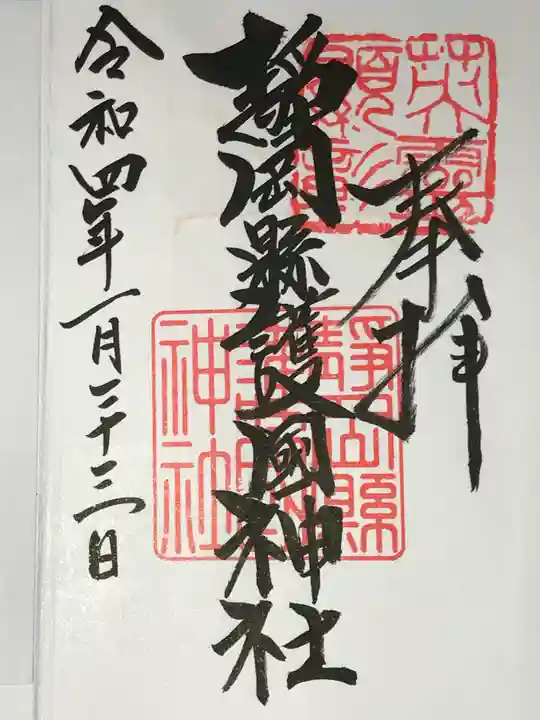 奉拝
英霊
顕彰
靜岡縣護國神社
靜岡縣
護國
神社
令和四年一月二十三日